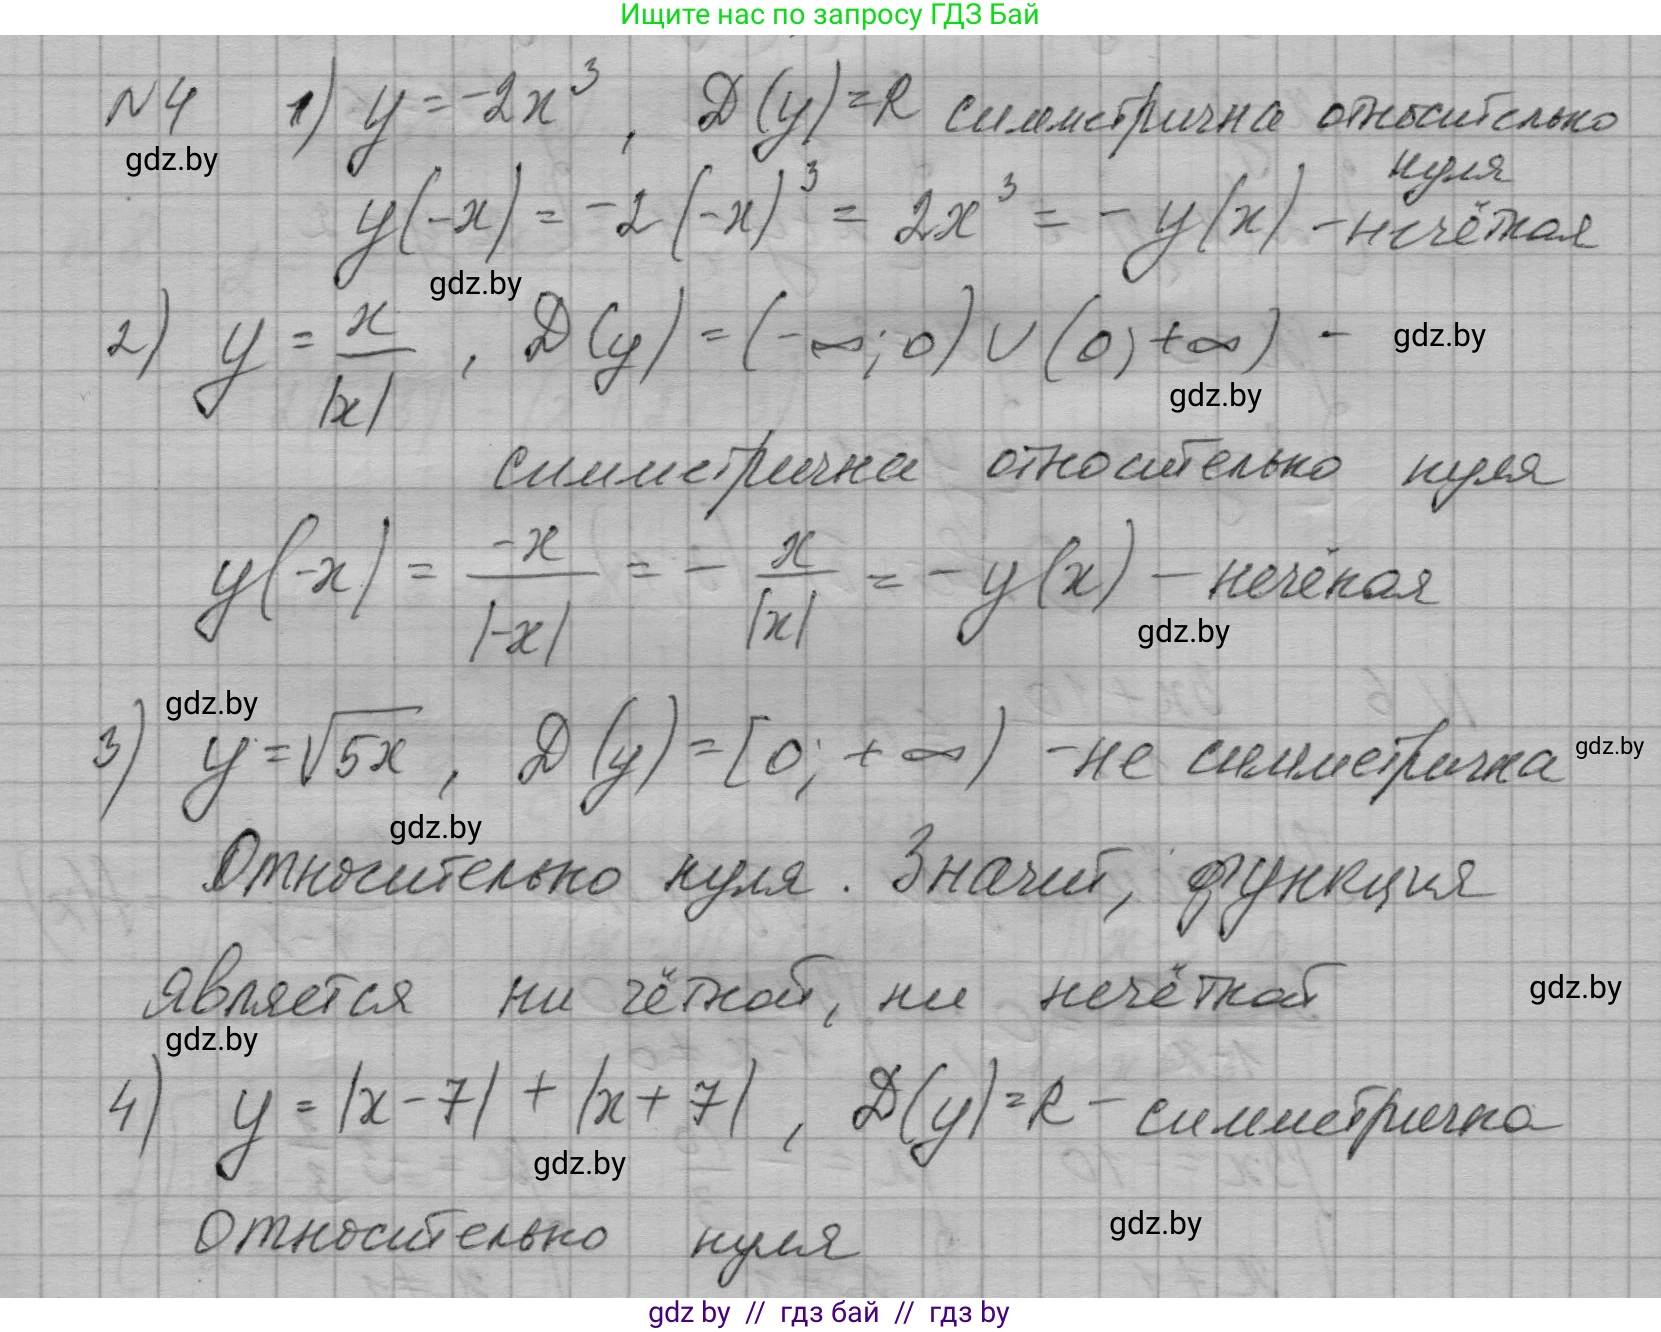 Ищите нас по запросу ГДЗ Бай
N4 1) y = -2x³, D(y)=R симметрична относительно
нуля
gdz.by
y(-x) = -2(-x)³ = 2x³ = -y(x) - нечётная
gdz.by
2) y = x/|x|, D(y) = (-∞; 0) ∪ (0; +∞) -
gdz.by
gdz.by
симметрична относительно нуля
y(-x) = -x/|-x| = - x/|x| = -y(x) - нечётная
gdz.by
gdz.by
3) y = √5x, D(y) = [0; +∞) - не симметрична
gdz.by
gdz.by
Относительно нуля. Значит, функция
является ни чётной, ни нечётной
gdz.by
gdz.by
4) y = |x-7| + |x+7|, D(y) = R - симметрична
gdz.by
относительно нуля
gdz.by
gdz by // гдз бай // гдз by